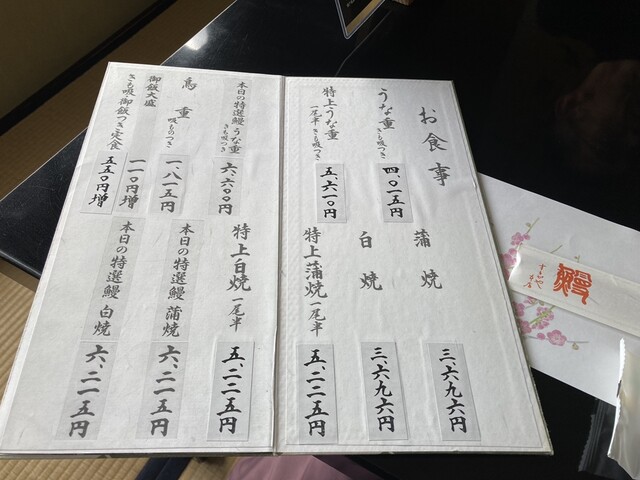 お食事
うな重 きも吸つき
四、〇一五円
特上うな重
一尾半 きも吸つき
五、六一〇円
蒲焼
三、六九六円
白焼
三、六九六円
特上蒲焼 一尾半
五、二二五円
本日の特選鰻 うな重
きも吸つき
六、六〇〇円
鳥重 吸ものつき
一、八一五円
御飯大盛
一一〇円増
きも吸 御飯つき定食
五五〇円増
特上白焼 一尾半
五、二二五円
本日の特選鰻 蒲焼
六、二一五円
本日の特選鰻 白焼
六、二一五円
鰻